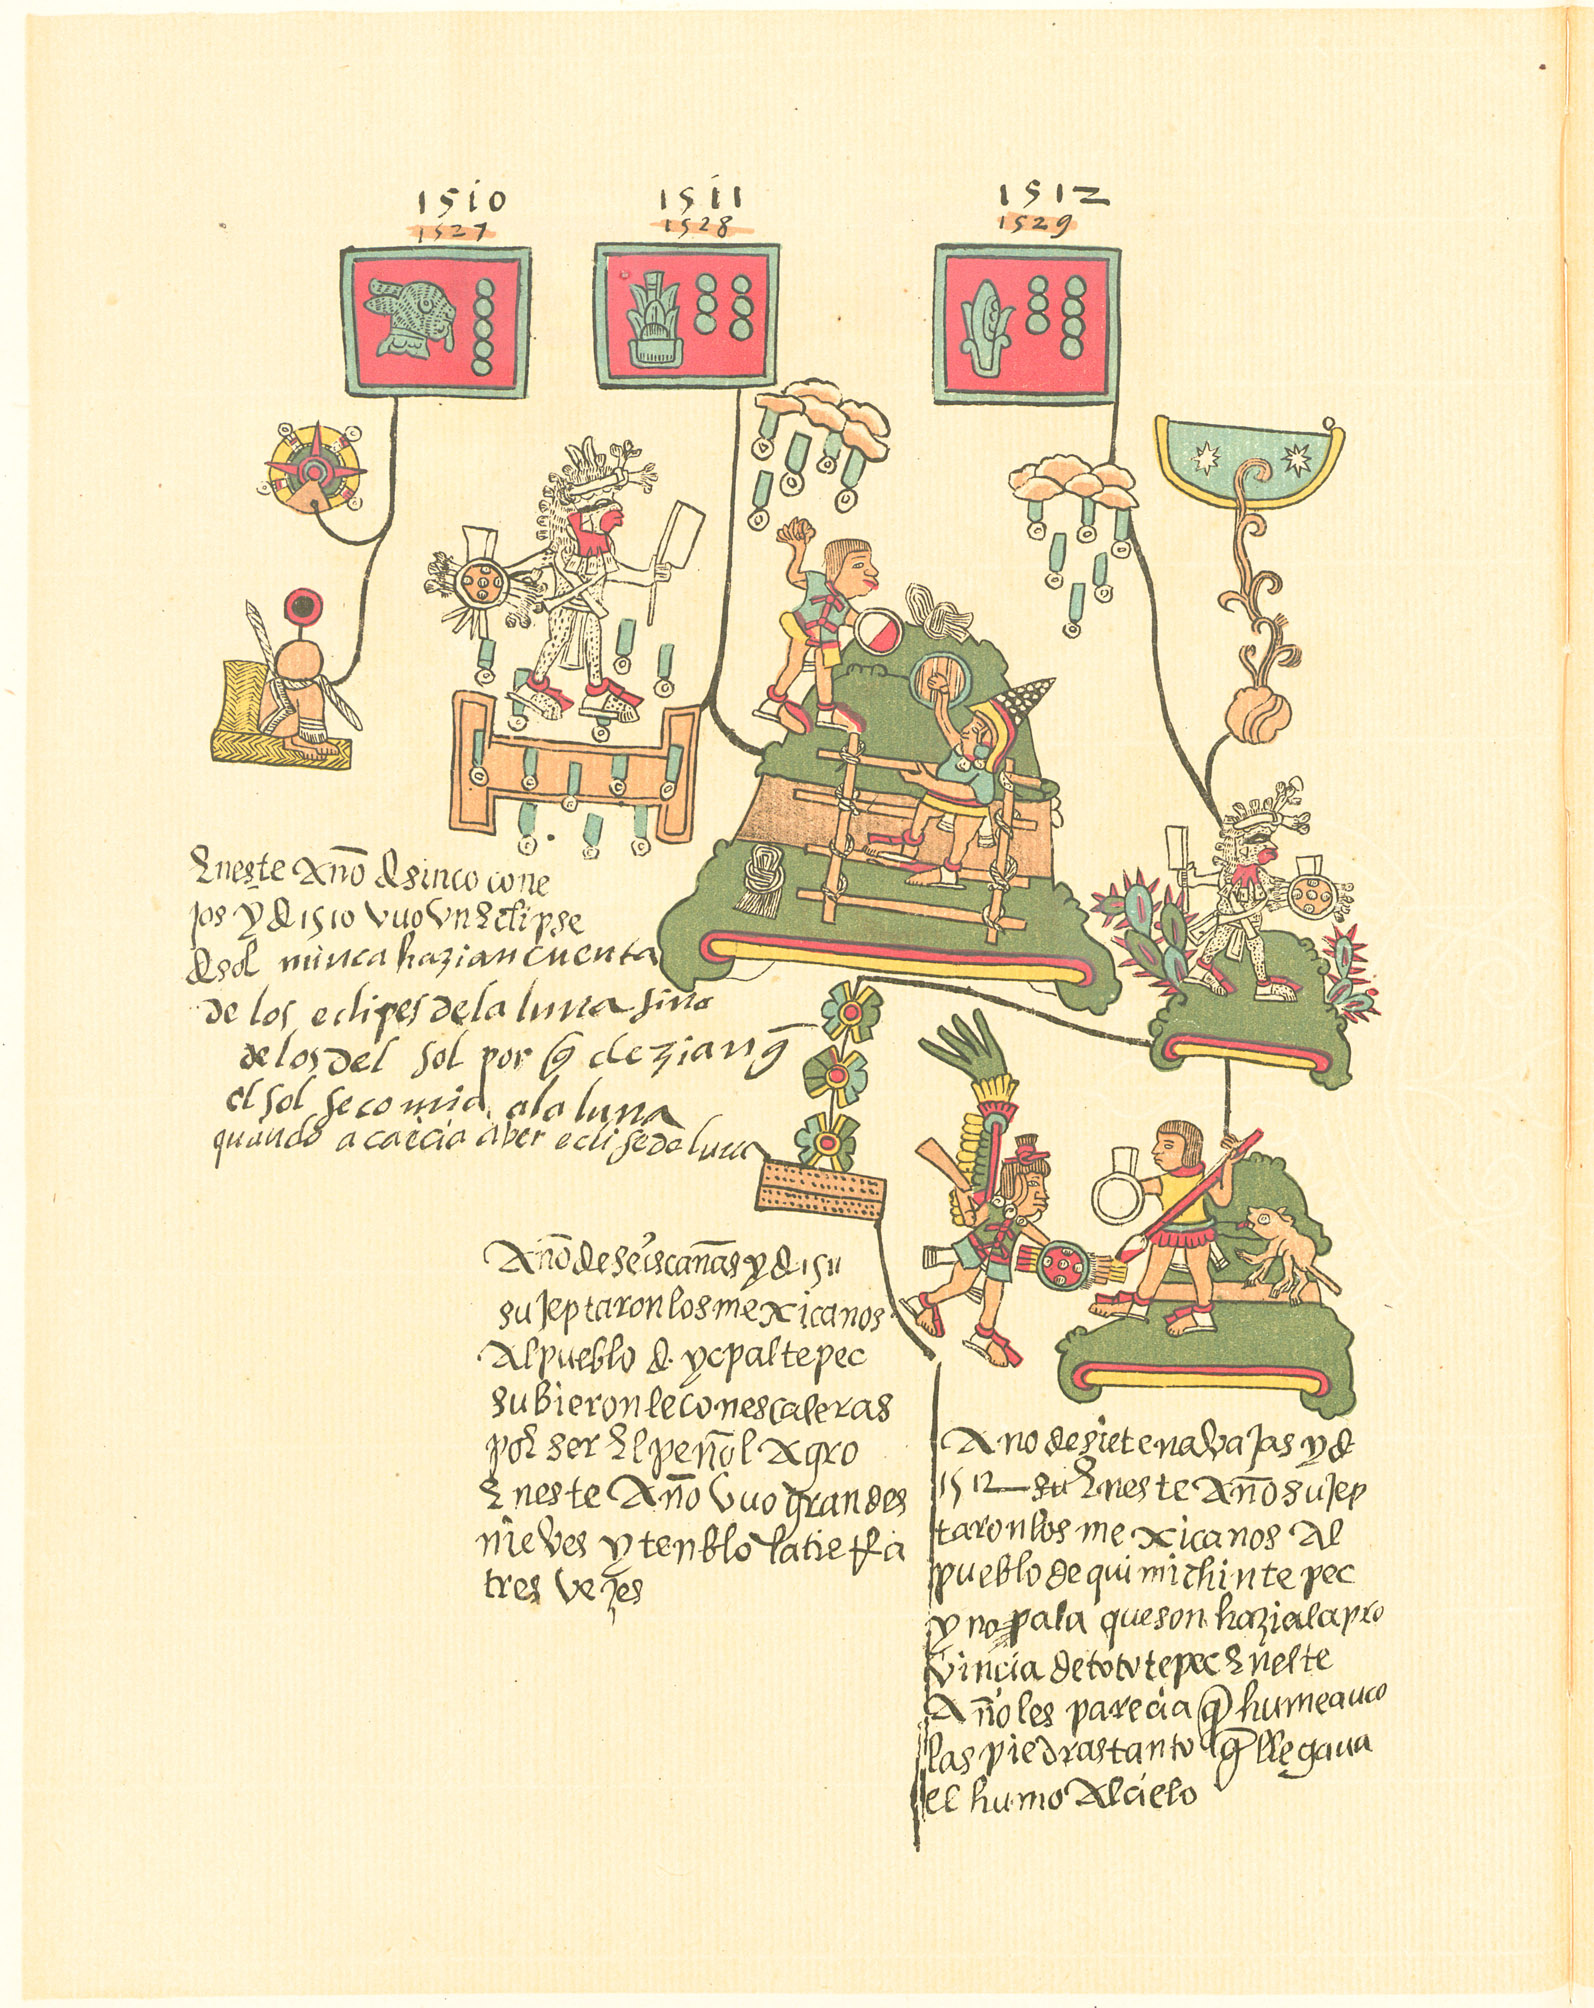 1510
1527
1511
1528
1512
1529
Eneste Año d sinco cone
jos y d 1510 vuo vn Eclipse
d sol nunca hazian cuenta
de los eclipes de la luna sino
de los del sol por q̃ dezian q̃
el sol se comia a la luna
quando acaecia aber eclise de luna
Año de seis cañas y d 1511
sujeptaron los mexicanos
Al pueblo d ycpaltepec
subieronle con escaleras
por ser El peñol Agro
Eneste Año vuo grandes
nieves y tenblo la tierra
tres vezes
Ano de siete navajas y d
1512 su Eneste Año sujep
taron los mexicanos Al
pueblo de quimichintepec
y nopala que son hazia la pro
vincia de tototepec Eneste
Año les parecia q̃ humeauā
las piedras tanto q̃ llegaua
el humo Al cielo